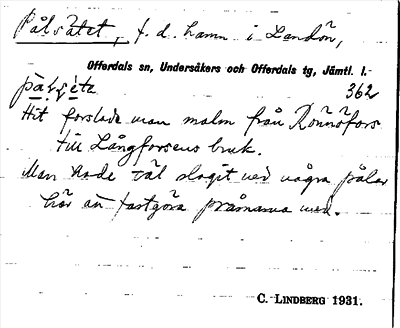 Pålsätet, f.d. hamn i Landön,
Offerdals sn, Undersåkers och Offerdals tg, Jämtl. l.
362
Hit forslade man malm från Rönnöfors
till Långforsens bruk.
Man hade väl slagit ned några pålar
här att fastgöra pråmarna med.
C. LINDBERG 1931.